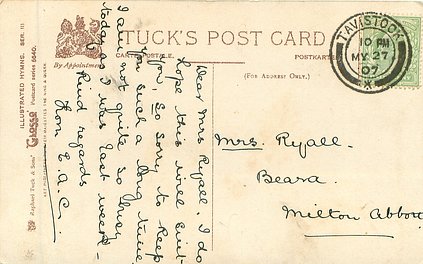 TUCK'S POST CARD
CARTE POSTALE.
POSTKARTE
By Appointment
(FOR ADDRESS ONLY.)
TAVISTOCK
10 PM
MY 27
07
ILLUSTRATED HYMNS. SER. III
"Glosso" Postcard series 6640.
Raphael Tuck & Sons'
Dear Mrs Ryall. I do
hope this will suit
you, so sorry to keep
you such a long time
I am not quite so busy
today as I was last week -
Kind regards
from E.A.C.
Mrs. Ryall.
Beara
Milton Abbott